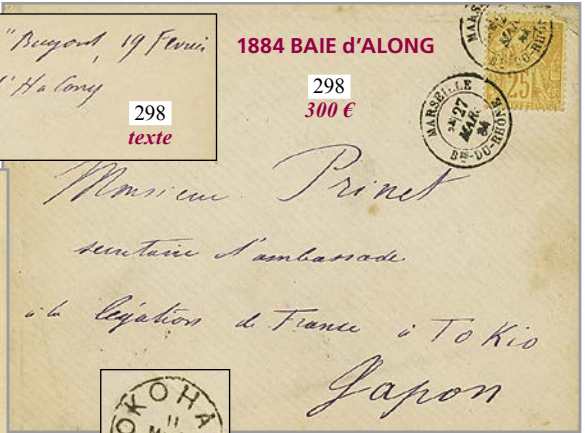 "Bayard, 19 Février
d'Halong
298
texte
1884 BAIE d'ALONG
298
300 €
MARSEILLE
27
MARS
84
BES-DU-RHÔNE
25
Monsieur Prinet
secretaire d'ambassade
à la légation de France à Tokio
Japon
OKOHA
11